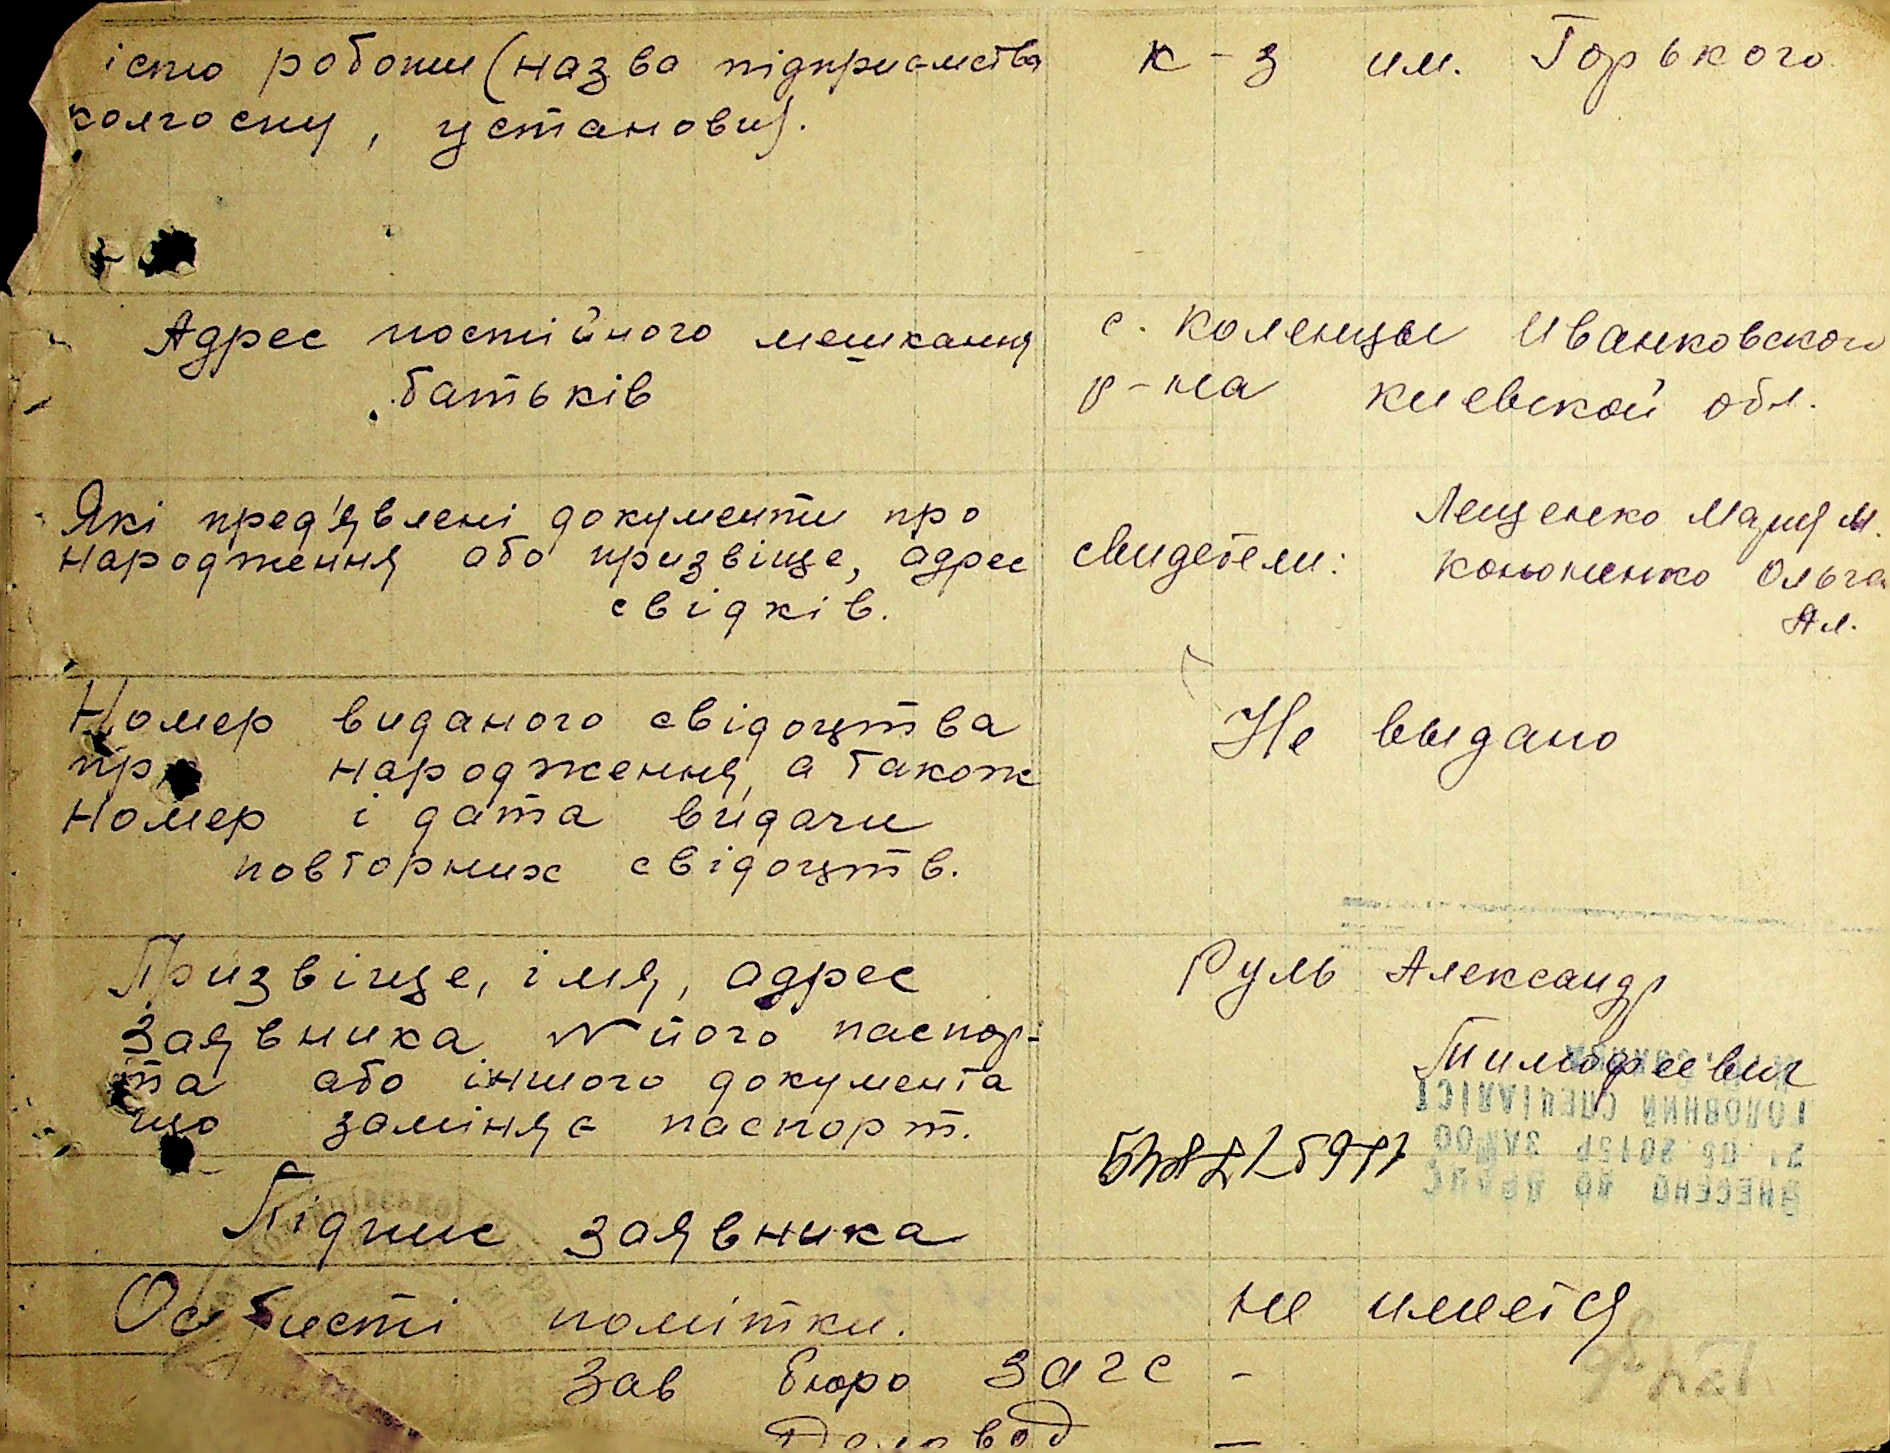 істо роботи (назва підприємства
колгоспу, установи).
к-з им. Горького
Адрес постійного мешкання
батьків
с. Коленцы Иванковского
р-на Киевской обл.
Які пред'явлені документи про
народження або призвіще, адрес
свідків.
Лещенко Мария М.
свидетели: Кононенко Ольга
Ал.
Номер виданого свідоцтва
пр народження, а також
номер і дата видачи
повторних свідоцтв.
Не выдано
Призвіще, імя, адрес
заявника № його паспор-
та або іншого документа
що заміняє паспорт.
Руль Александр
Тимофеевич
Підпис заявника
Особисті помітки.
не имеется
Зав бюро загс -
Діловод -
ВНЕСЕНО ДО
ГОЛОВНИЙ СПЕЦІАЛІСТ